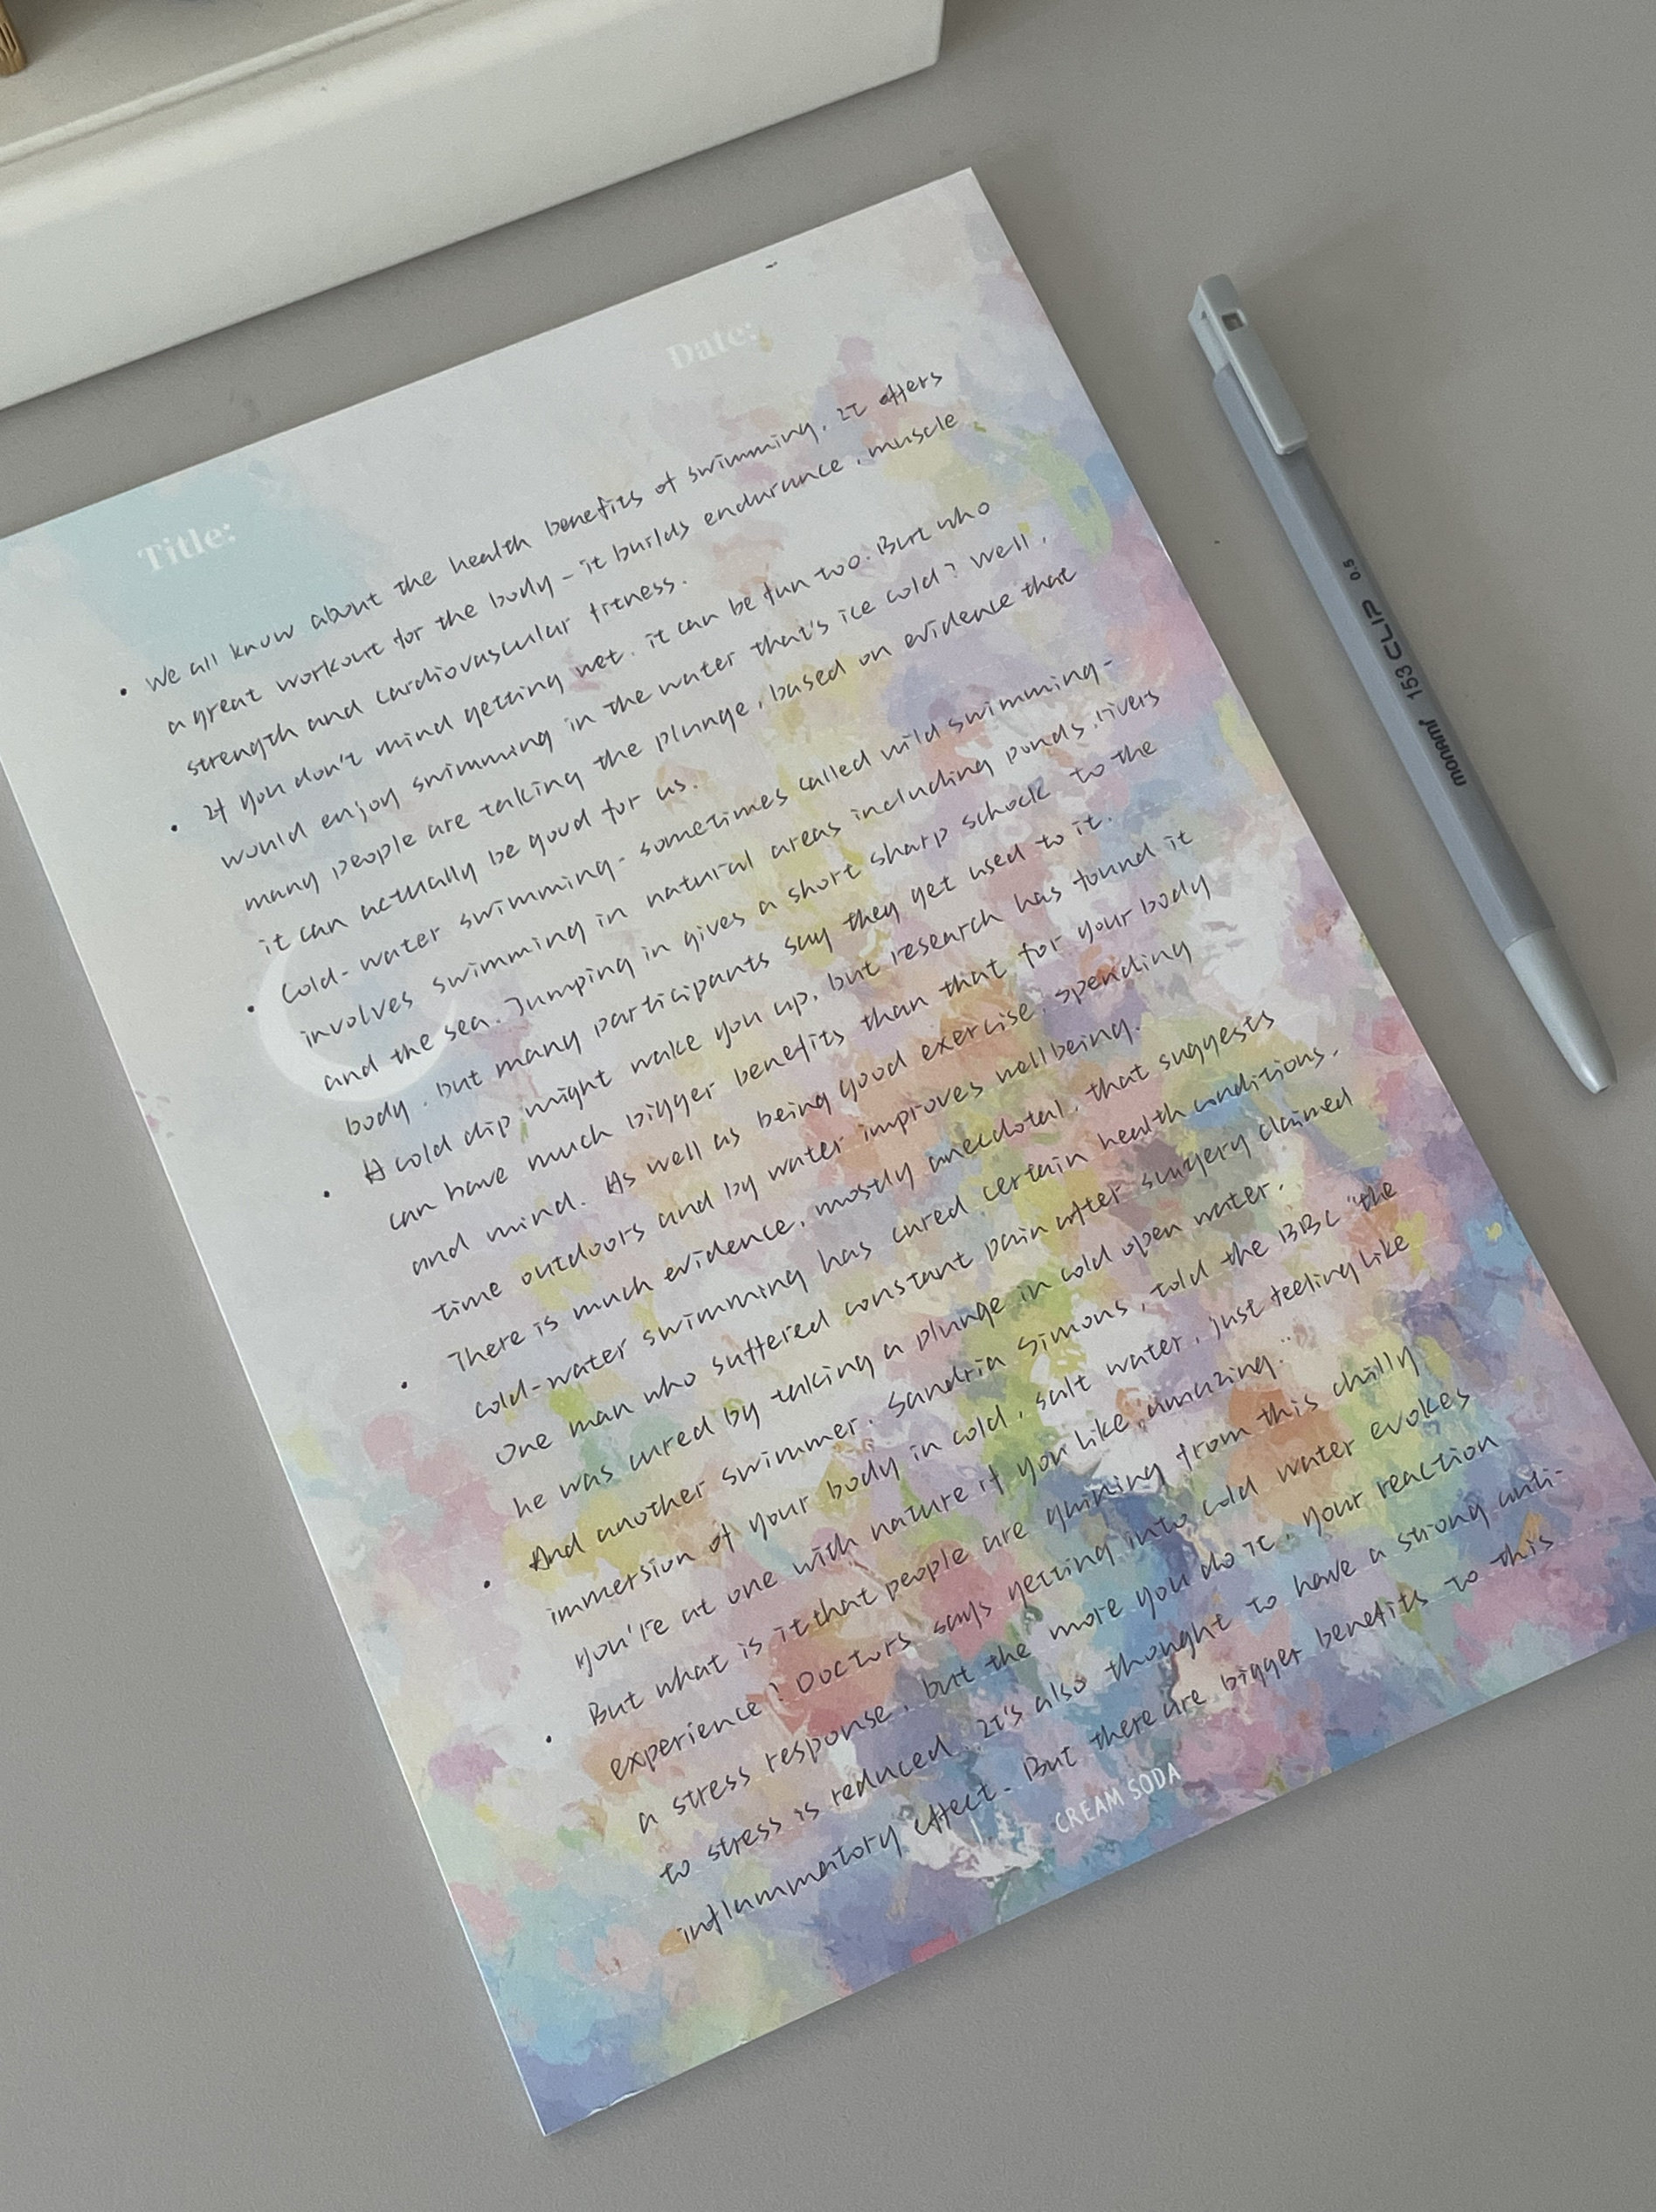 Title:
Date:
• We all know about the health benefits of swimming. It offers
a great workout for the body - it builds endurance, muscle
strength and cardiovascular fitness.
• If you don't mind getting wet, it can be fun too. But who
would enjoy swimming in the water that's ice cold? Well,
many people are taking the plunge, based on evidence that
it can actually be good for us.
• Cold-water swimming - sometimes called wild swimming -
involves swimming in natural areas including ponds, rivers
and the sea. Jumping in gives a short sharp schock to the
body, but many participants say they get used to it.
• A cold dip might wake you up, but research has found it
can have much bigger benefits than that for your body
and mind. As well as being good exercise, spending
time outdoors and by water improves wellbeing.
• There is much evidence, mostly anecdotal, that suggests
cold-water swimming has cured certain health conditions.
One man who suffered constant pain after surgery claimed
he was cured by taking a plunge in cold open water.
• And another swimmer, Sandria Simons, told the BBC "the
immersion of your body in cold, salt water, just feeling like
you're at one with nature if you like, amazing."
• But what is it that people are gaining from this chilly
experience? Doctors says getting into cold water evokes
a stress response, but the more you do it, your reaction
to stress is reduced. It's also thought to have a strong anti-
inflammatory effect. But there are bigger benefits to this
CREAM SODA
monami 153 CLIP 0.5